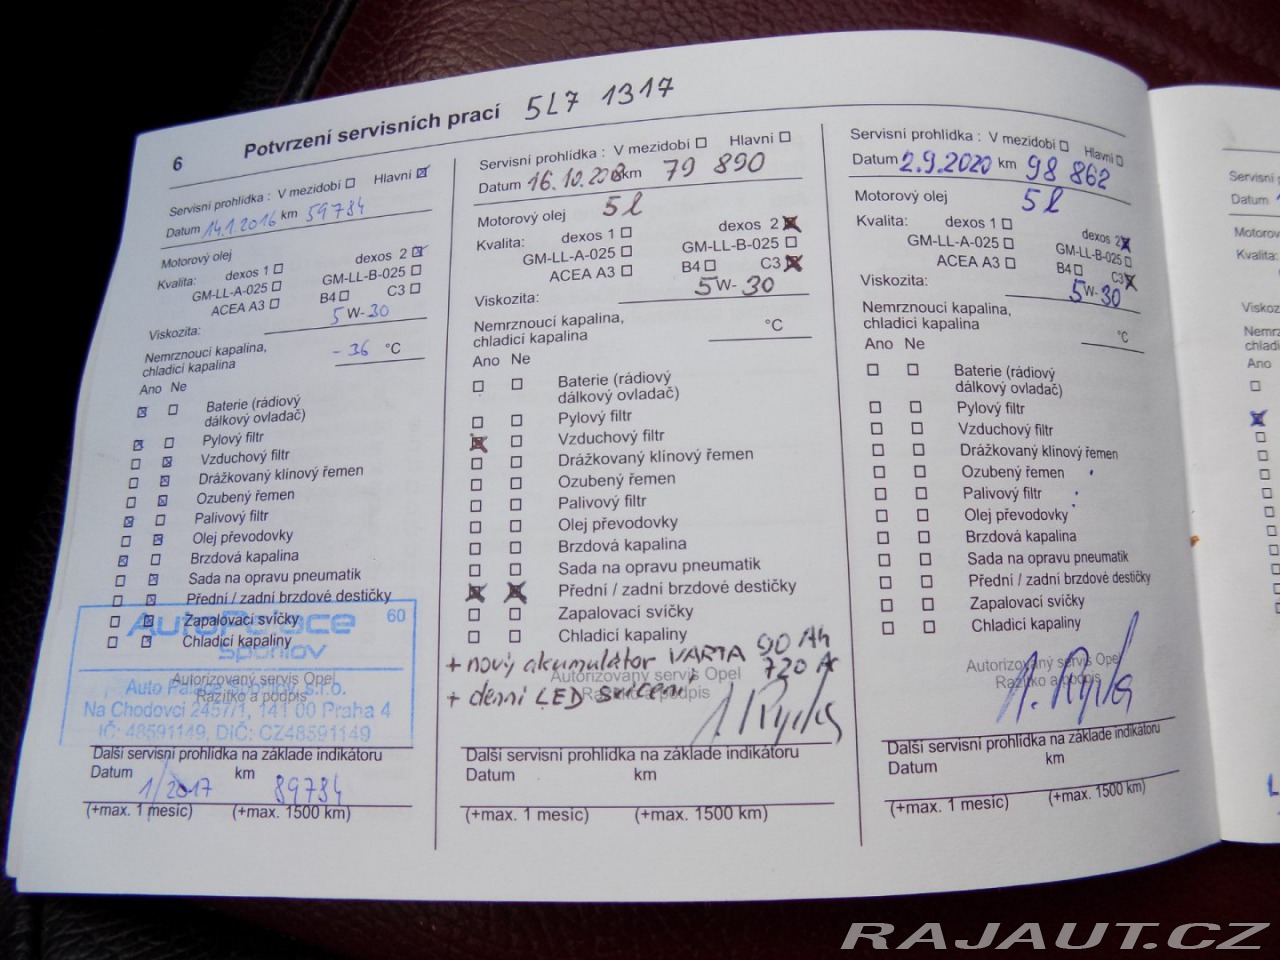 6 Potvrzení servisních prací 5L7 1317
Servisní prohlídka : V mezidobí Hlavní
Datum 14.1.2016 km 59784
Motorový olej
Kvalita: dexos 1 dexos 2
GM-LL-A-025 GM-LL-B-025
ACEA A3 B4 C3
Viskozita: 5 W- 30
Nemrznoucí kapalina,
chladicí kapalina - 36 °C
Ano Ne
Baterie (rádiový
dálkový ovladač)
Pylový filtr
Vzduchový filtr
Drážkovaný klínový řemen
Ozubený řemen
Palivový filtr
Olej převodovky
Brzdová kapalina
Sada na opravu pneumatik
Přední / zadní brzdové destičky
Zapalovací svíčky
Chladicí kapaliny
AutoPalace 60
Spořilov
Autorizovaný servis Opel
Razítko a podpis
Auto Palace Spořilov, s.r.o.
Na Chodovci 2457/1, 141 00 Praha 4
IČ: 48591149, DIČ: CZ48591149
Další servisní prohlídka na základe indikátoru
Datum 1/2017 km 89784
(+max. 1 mesíc) (+max. 1500 km)
Servisní prohlídka : V mezidobí Hlavní
Datum 16.10. km 79 890
Motorový olej 5l
Kvalita: dexos 1 dexos 2
GM-LL-A-025 GM-LL-B-025
ACEA A3 B4 C3
Viskozita: 5 W- 30
Nemrznoucí kapalina,
chladicí kapalina °C
Ano Ne
Baterie (rádiový
dálkový ovladač)
Pylový filtr
Vzduchový filtr
Drážkovaný klínový řemen
Ozubený řemen
Palivový filtr
Olej převodovky
Brzdová kapalina
Sada na opravu pneumatik
Přední / zadní brzdové destičky
Zapalovací svíčky
Chladicí kapaliny
+ nový akumulátor VARTA 90 Ah
720 A
Autorizovaný servis Opel
+ denní LED svícení
Razítko a podpis
Další servisní prohlídka na základe indikátoru
Datum km
(+max. 1 mesíc) (+max. 1500 km)
Servisní prohlídka : V mezidobí Hlavní
Datum 2.9.2020 km 98 862
Motorový olej 5l
Kvalita: dexos 1 dexos 2
GM-LL-A-025 GM-LL-B-025
ACEA A3 B4 C3
Viskozita: 5 W- 30
Nemrznoucí kapalina,
chladicí kapalina °C
Ano Ne
Baterie (rádiový
dálkový ovladač)
Pylový filtr
Vzduchový filtr
Drážkovaný klínový řemen
Ozubený řemen
Palivový filtr
Olej převodovky
Brzdová kapalina
Sada na opravu pneumatik
Přední / zadní brzdové destičky
Zapalovací svíčky
Chladicí kapaliny
Autorizovaný servis Opel
Razítko a podpis
Další servisní prohlídka na základe indikátoru
Datum km
(+max. 1 mesíc) (+max. 1500 km)
Datum
Kvalita:
Ano
RAJAUT.CZ